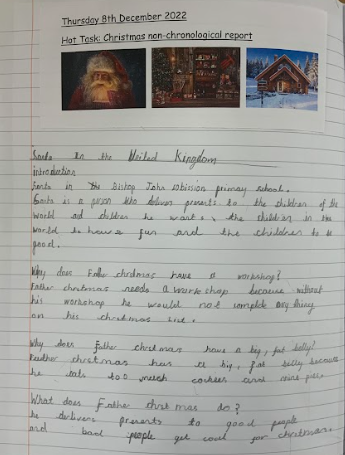 Thursday 8th December 2022
Hot Task: Christmas non-chronological report
Santa in the United Kingdom
introduction
Santa in the Bishop John primary school.
Santa is a person who delivers presents to the children of the
world and children he wants the children in the
world to have fun and the children to be
good.
Why does Father christmas have a workshop?
Father christmas needs a workshop because without
his workshop he would not complete any thing
on his christmas list.
Why does Father christmas have a big, fat belly?
Father christmas has a big, fat belly because
he eats too much cookies and mince pies.
What does Father christmas do?
he delivers presents to good people
and bad people get coal for christmas.